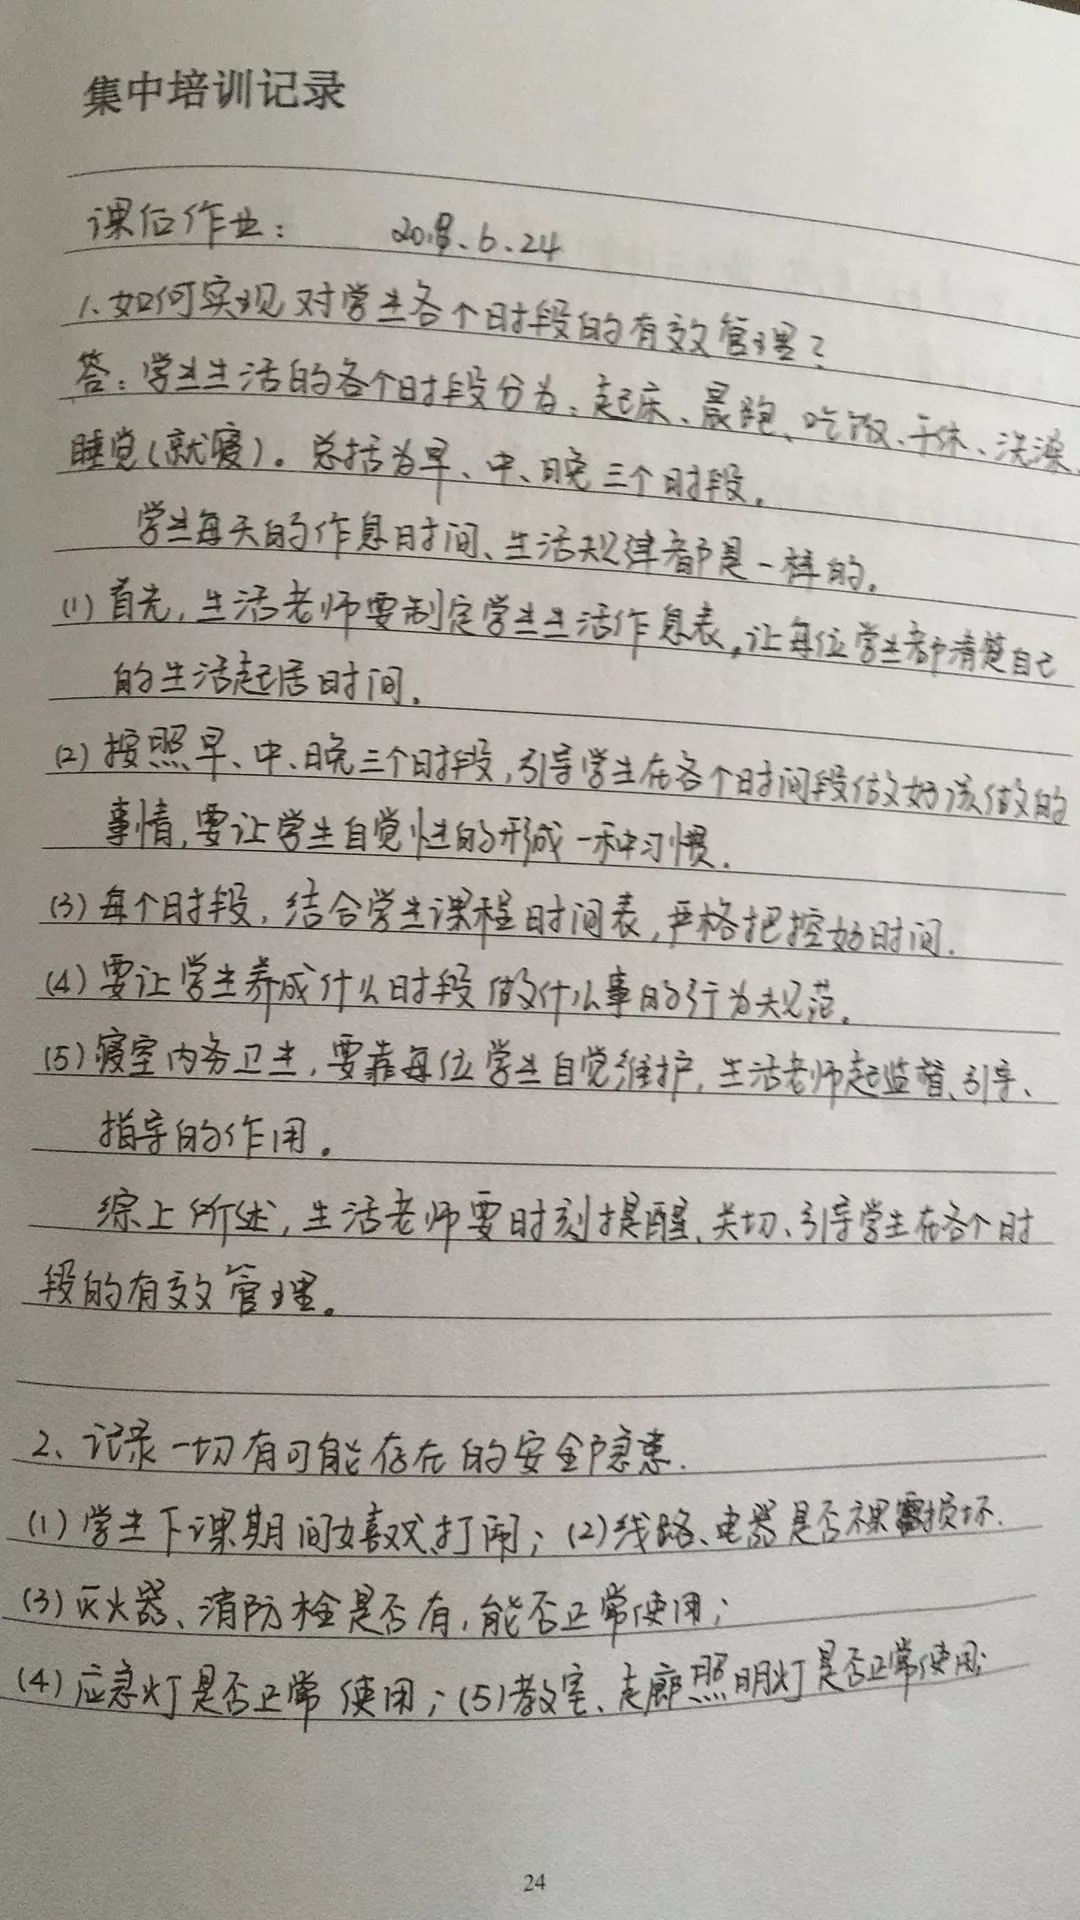 集中培训记录
课后作业： 2018、6、24
1、如何实现对学生各个时段的有效管理？
答：学生生活的各个时段分为：起床、晨跑、吃饭、午休、洗澡、
睡觉（就寝）。总括为早、中、晚三个时段。
学生每天的作息时间、生活规律都是一样的。
(1) 首先，生活老师要制定学生生活作息表，让每位学生都清楚自己
的生活起居时间。
(2) 按照早、中、晚三个时段，引导学生在各个时间段做好该做的
事情，要让学生自觉性的形成一种习惯.
(3) 每个时段，结合学生课程时间表，严格把控好时间.
(4) 要让学生养成什么时段做什么事的行为规范。
(5) 寝室内务卫生，要靠每位学生自觉维护，生活老师起监督、引导、
指导的作用。
综上所述，生活老师要时刻提醒、关切、引导学生在各个时
段的有效管理。
2、记录一切有可能存在的安全隐患.
(1) 学生下课期间嬉戏打闹；(2) 线路、电器是否裸露损坏.
(3) 灭火器、消防栓是否有，能否正常使用；
(4) 应急灯是否正常使用；(5) 教室、走廊照明灯是否正常使用；
24